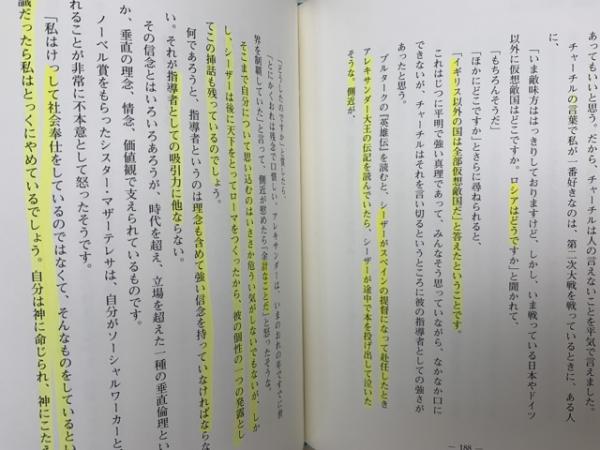 あってもいいと思う。だから、チャーチルは人の言えないことを平気で言えました。
チャーチルの言葉で私が一番好きなのは、第二次大戦を戦っているときに、ある人
に、
「いま敵味方ははっきりしておりますけど、しかし、いま戦っている日本やドイツ
以外に仮想敵国はどこですか。ロシアはどうですか」と聞かれて、
「もちろんそうだ」
「ほかにどこですか」とさらに尋ねられると、
「イギリス以外の国は全部仮想敵国だ」と答えたということです。
これはじつに平明で強い真理であって、みんなそう思っていながら、なかなか口に
できないが、チャーチルはそれを言い切るというところに彼の指導者としての強さが
あったと思う。
プルタークの『英雄伝』を読むと、シーザーがスペインの提督になって赴任したとき
アレキサンダー大王の伝記を読んでいたら、シーザーが途中で本を投げ出して泣いた
そうな。側近が、
― 188
「どうしたのですか」と質したら、
「とにかくおれは残念で口惜しい。アレキサンダーは、いまのおれの年ですでに世
界を制覇していた」と言って、側近が慰めたら「余計なことだ」と怒ったそうな。
そこまで自分について思い込むのはいささか危うい気がしないでもないが、しか
し、シーザーは後に天下をとってローマをつくったから、彼の個性の一つの発露とし
てこの挿話も残っているのでしょう。
何であろうと、指導者というのは理念も含めて強い信念を持っていなければならな
い。それが指導者としての吸引力に他ならない。
その信念とはいろいろあろうが、時代を超え、立場を超えた一種の垂直倫理という
か、垂直の理念、情念、価値観で支えられているものです。
ノーベル賞をもらったシスター・マザーテレサは、自分がソーシャルワーカーと
れることが非常に不本意として怒ったそうです。
「私はけっして社会奉仕をしているのではなくて、そんなものをしているとい
識だったら私はとっくにやめているでしょう。自分は神に命じられ、神にこたえ